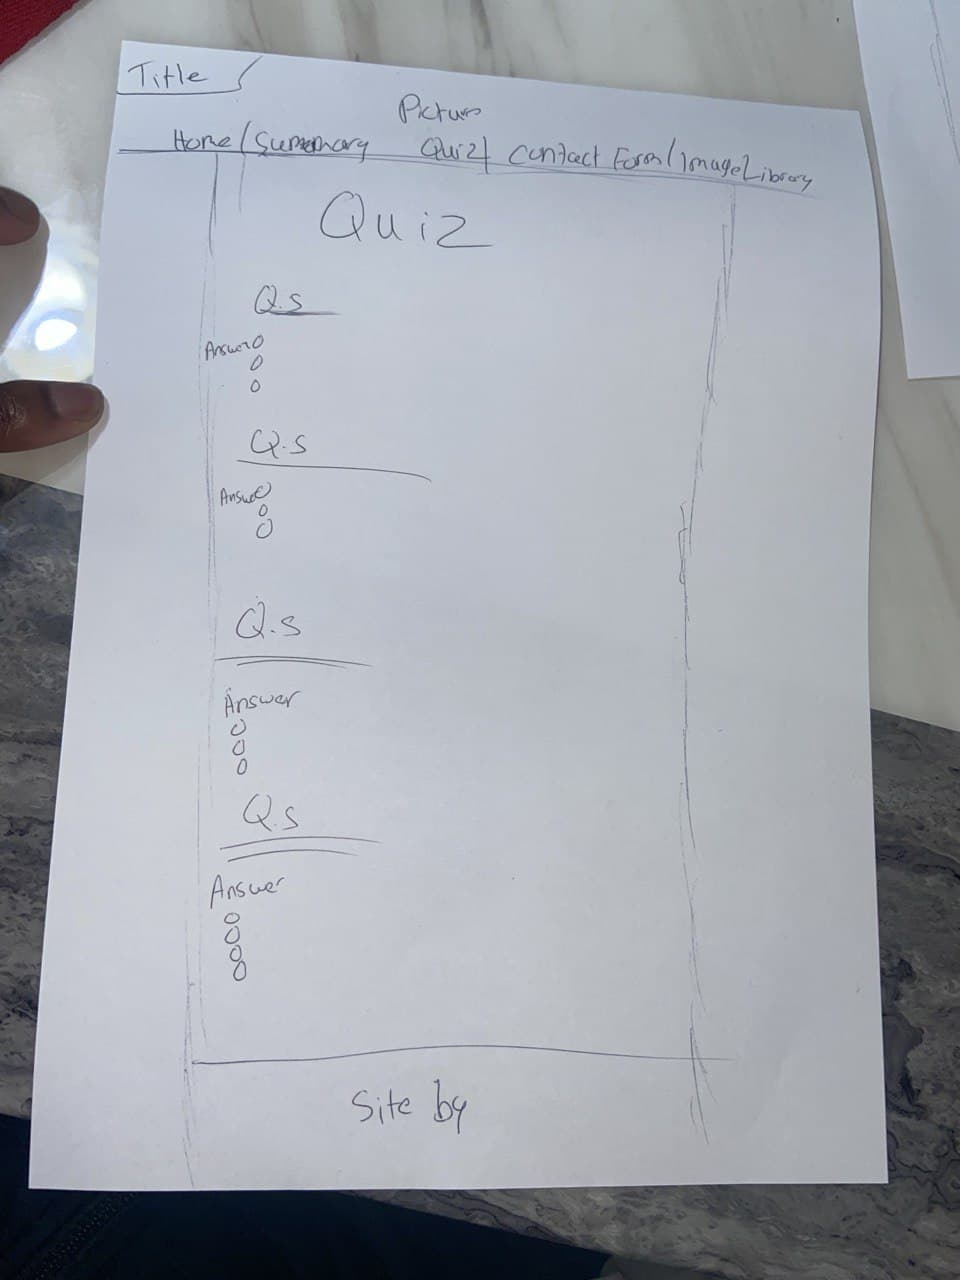 Title
Picture
Home / Summary Quiz / Contact Form / Image Library
Quiz
Q.s
Answer
Q.s
Answer
Q.s
Answer
Q.s
Answer
Site by